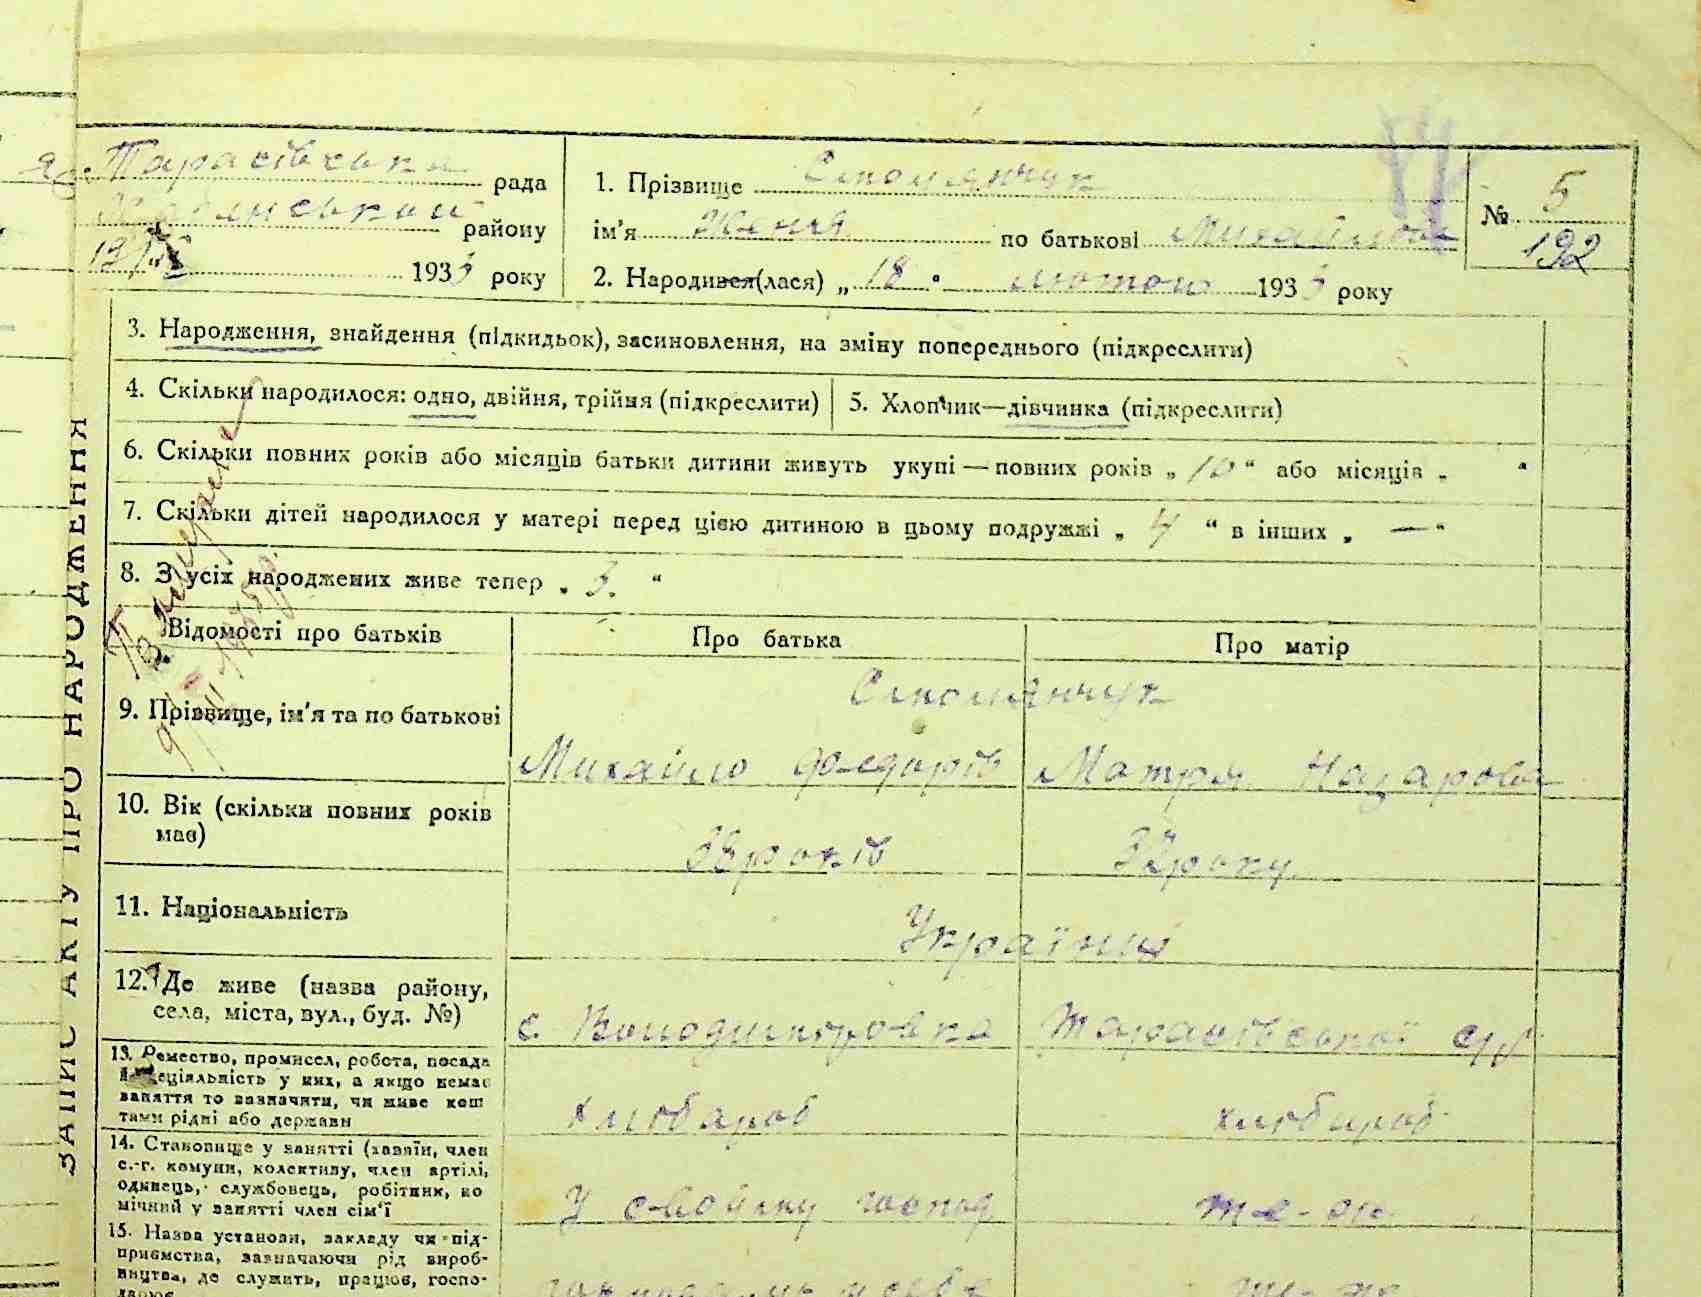 ЗАПИС АКТУ ПРО НАРОДЖЕННЯ
Тарасівська рада
району
193 року
1. Прізвище Стомянчук
ім'я Женя по батькові Михайлов
2. Народився(лася) „ 18 " лютого 1933 року
№ 5
192
3. Народження, знайдення (підкидьок), засиновлення, на зміну попереднього (підкреслити)
4. Скільки народилося: одно, двійня, трійня (підкреслити)
5. Хлопчик—дівчинка (підкреслити)
6. Скільки повних років або місяців батьки дитини живуть укупі — повних років „ 10 " або місяців „ "
7. Скільки дітей народилося у матері перед цією дитиною в цьому подружжі „ 4 " в інших „ — "
8. З усіх народжених живе тепер „ 3. "
Відомості про батьків Про батька Про матір
9. Прізвище, ім'я та по батькові Стомянчук
Михайло Федорів Мотря Назарова
10. Вік (скільки повних років має) 38 років 32 роки
11. Національність Українці
12. Де живе (назва району, села, міста, вул., буд. №) с. Володимировка Тарасівської с/р
13. Ремество, промисел, робота, посада
спеціяльність у них, а якщо немає
заняття то зазначити, чи живе кош
тами рідні або держави
хлібароб хлібороб
14. Становище у занятті (хазяїн, член
с.-г. комуни, колективу, член артілі,
одинець, службовець, робітник, по
мічний у занятті член сім'ї
У своїму господ те-ож
15. Назва установи, закладу чи під-
приємства, зазначаючи рід вироб-
ництва, де служить, працює, госпо-
дарює